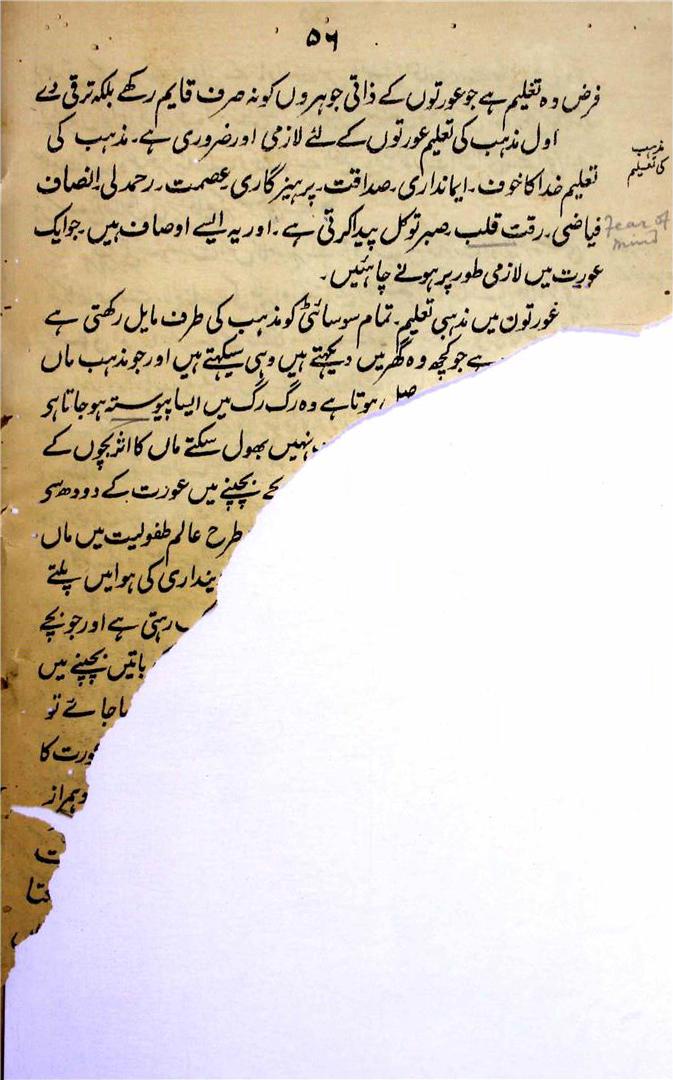 ۵۶
فرض وہ تعلیم ہے جو عورتوں کے ذاتی جوہروں کو نہ صرف قایم رکھے بلکہ ترقی دے
اول مذہب کی تعلیم عورتوں کے لئے لازمی اور ضروری ہے۔ مذہب کی
مذہب
کی تعلیم
تعلیم خدا کا خوف۔ ایمانداری۔ صداقت۔ پرہیزگاری۔ عصمت۔ رحمدلی۔ انصاف
فیاضی۔ رقت قلب۔ صبر توکل پیدا کرتی ہے۔ اور یہ ایسے اوصاف ہیں۔ جو ایک
Fear of
mind
عورت میں لازمی طور پر ہونے چاہئیں۔
عورتون میں مذہبی تعلیم۔ تمام سوسائٹی کو مذہب کی طرف مایل رکھتی ہے
ہے جو کچھ وہ گھر میں دیکھتے ہیں وہی سیکھتے ہیں اور جو مذہب ماں
ہوتا ہے وہ رگ رگ میں ایسا پیوستہ ہو جاتا ہی
نہیں بھول سکتے ماں کا اثر بچوں کے
بچپنے میں عورت کے دودھ سی
طرح عالم طفولیت میں ماں
ینداری کی ہوا میں پلتے
رہتی ہے اور جو بچے
باتیں بچپنے میں
جائے تو
ورت کا
وہمراز
ت